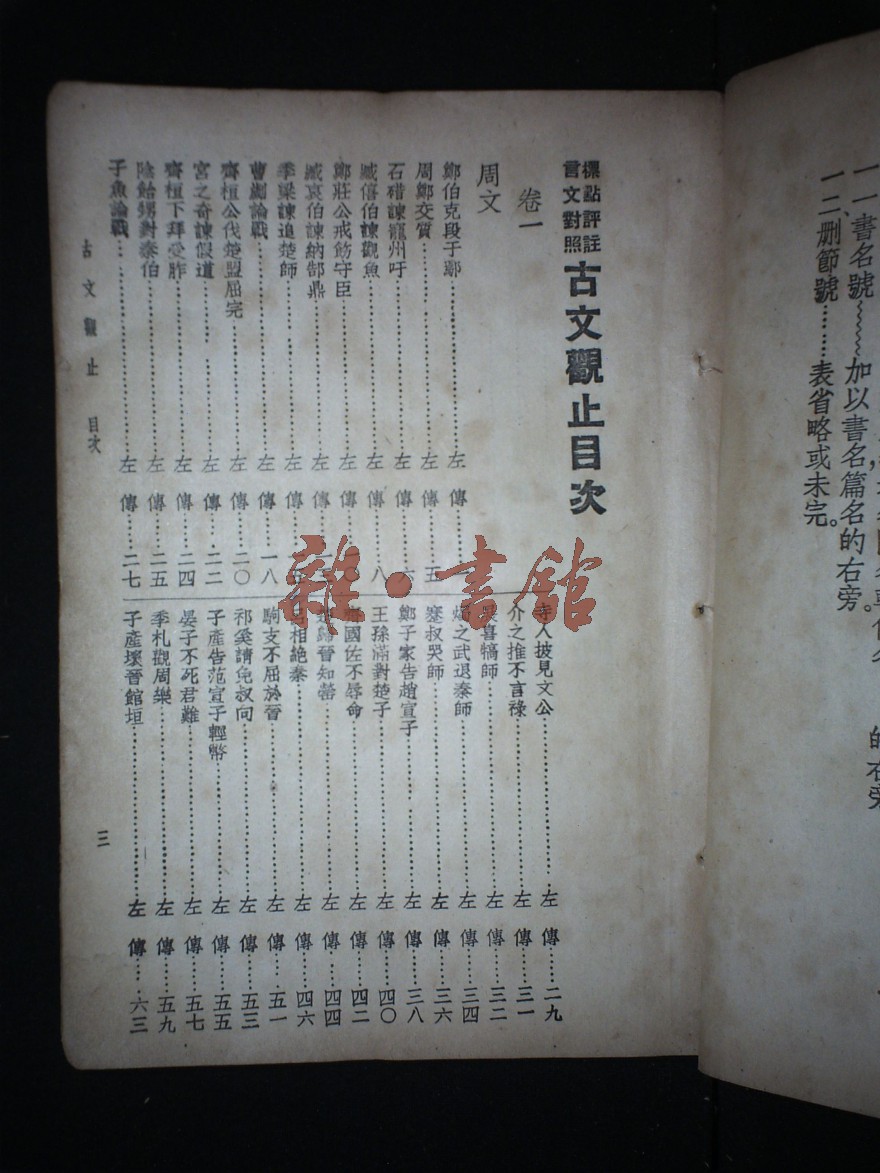 的右旁
一一、書名號﹏﹏加以書名篇名的右旁。
一二、删節號……表省略或未完。
標點評註
言文對照
古文觀止目次
卷一
周文
鄭伯克段于鄢……左傳……
周鄭交質……左傳……五
石碏諫寵州吁……左傳……六
臧僖伯諫觀魚……左傳……八
鄭莊公戒飭守臣……左傳……〇
臧哀伯諫納郜鼎……左傳……
季梁諫追楚師……左傳……
曹劌論戰……左傳……一八
齊桓公伐楚盟屈完……左傳……二〇
宮之奇諫假道……左傳……二二
齊桓下拜受胙……左傳……二四
陰飴甥對秦伯……左傳……二五
子魚論戰……左傳……二七
寺人披見文公……左傳……二九
介之推不言祿……左傳……三一
展喜犒師……左傳……三二
燭之武退秦師……左傳……三四
蹇叔哭師……左傳……三六
鄭子家告趙宣子……左傳……三八
王孫滿對楚子……左傳……四〇
齊國佐不辱命……左傳……四二
楚歸晉知罃……左傳……四四
呂相絕秦……左傳……四六
駒支不屈於晉……左傳……五一
祁奚請免叔向……左傳……五三
子產告范宣子輕幣……左傳……五五
晏子不死君難……左傳……五七
季札觀周樂……左傳……五九
子產壞晉館垣……左傳……六三
古文觀止 目次
三
雜·書館